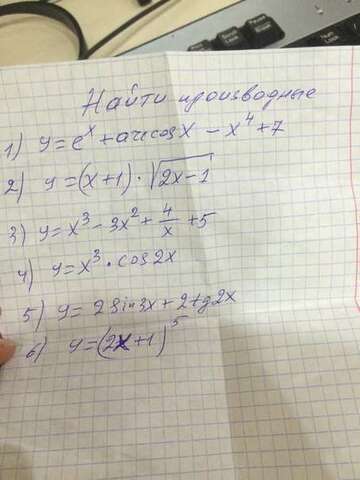 Найти производные
1) y = e^x + arccosx - x^4 + 7
2) y = (x+1) · √(2x-1)
3) y = x^3 - 3x^2 + 4/x + 5
4) y = x^3 · cos2x
5) y = 2sin3x + 2tg2x
6) y = (2x+1)^5